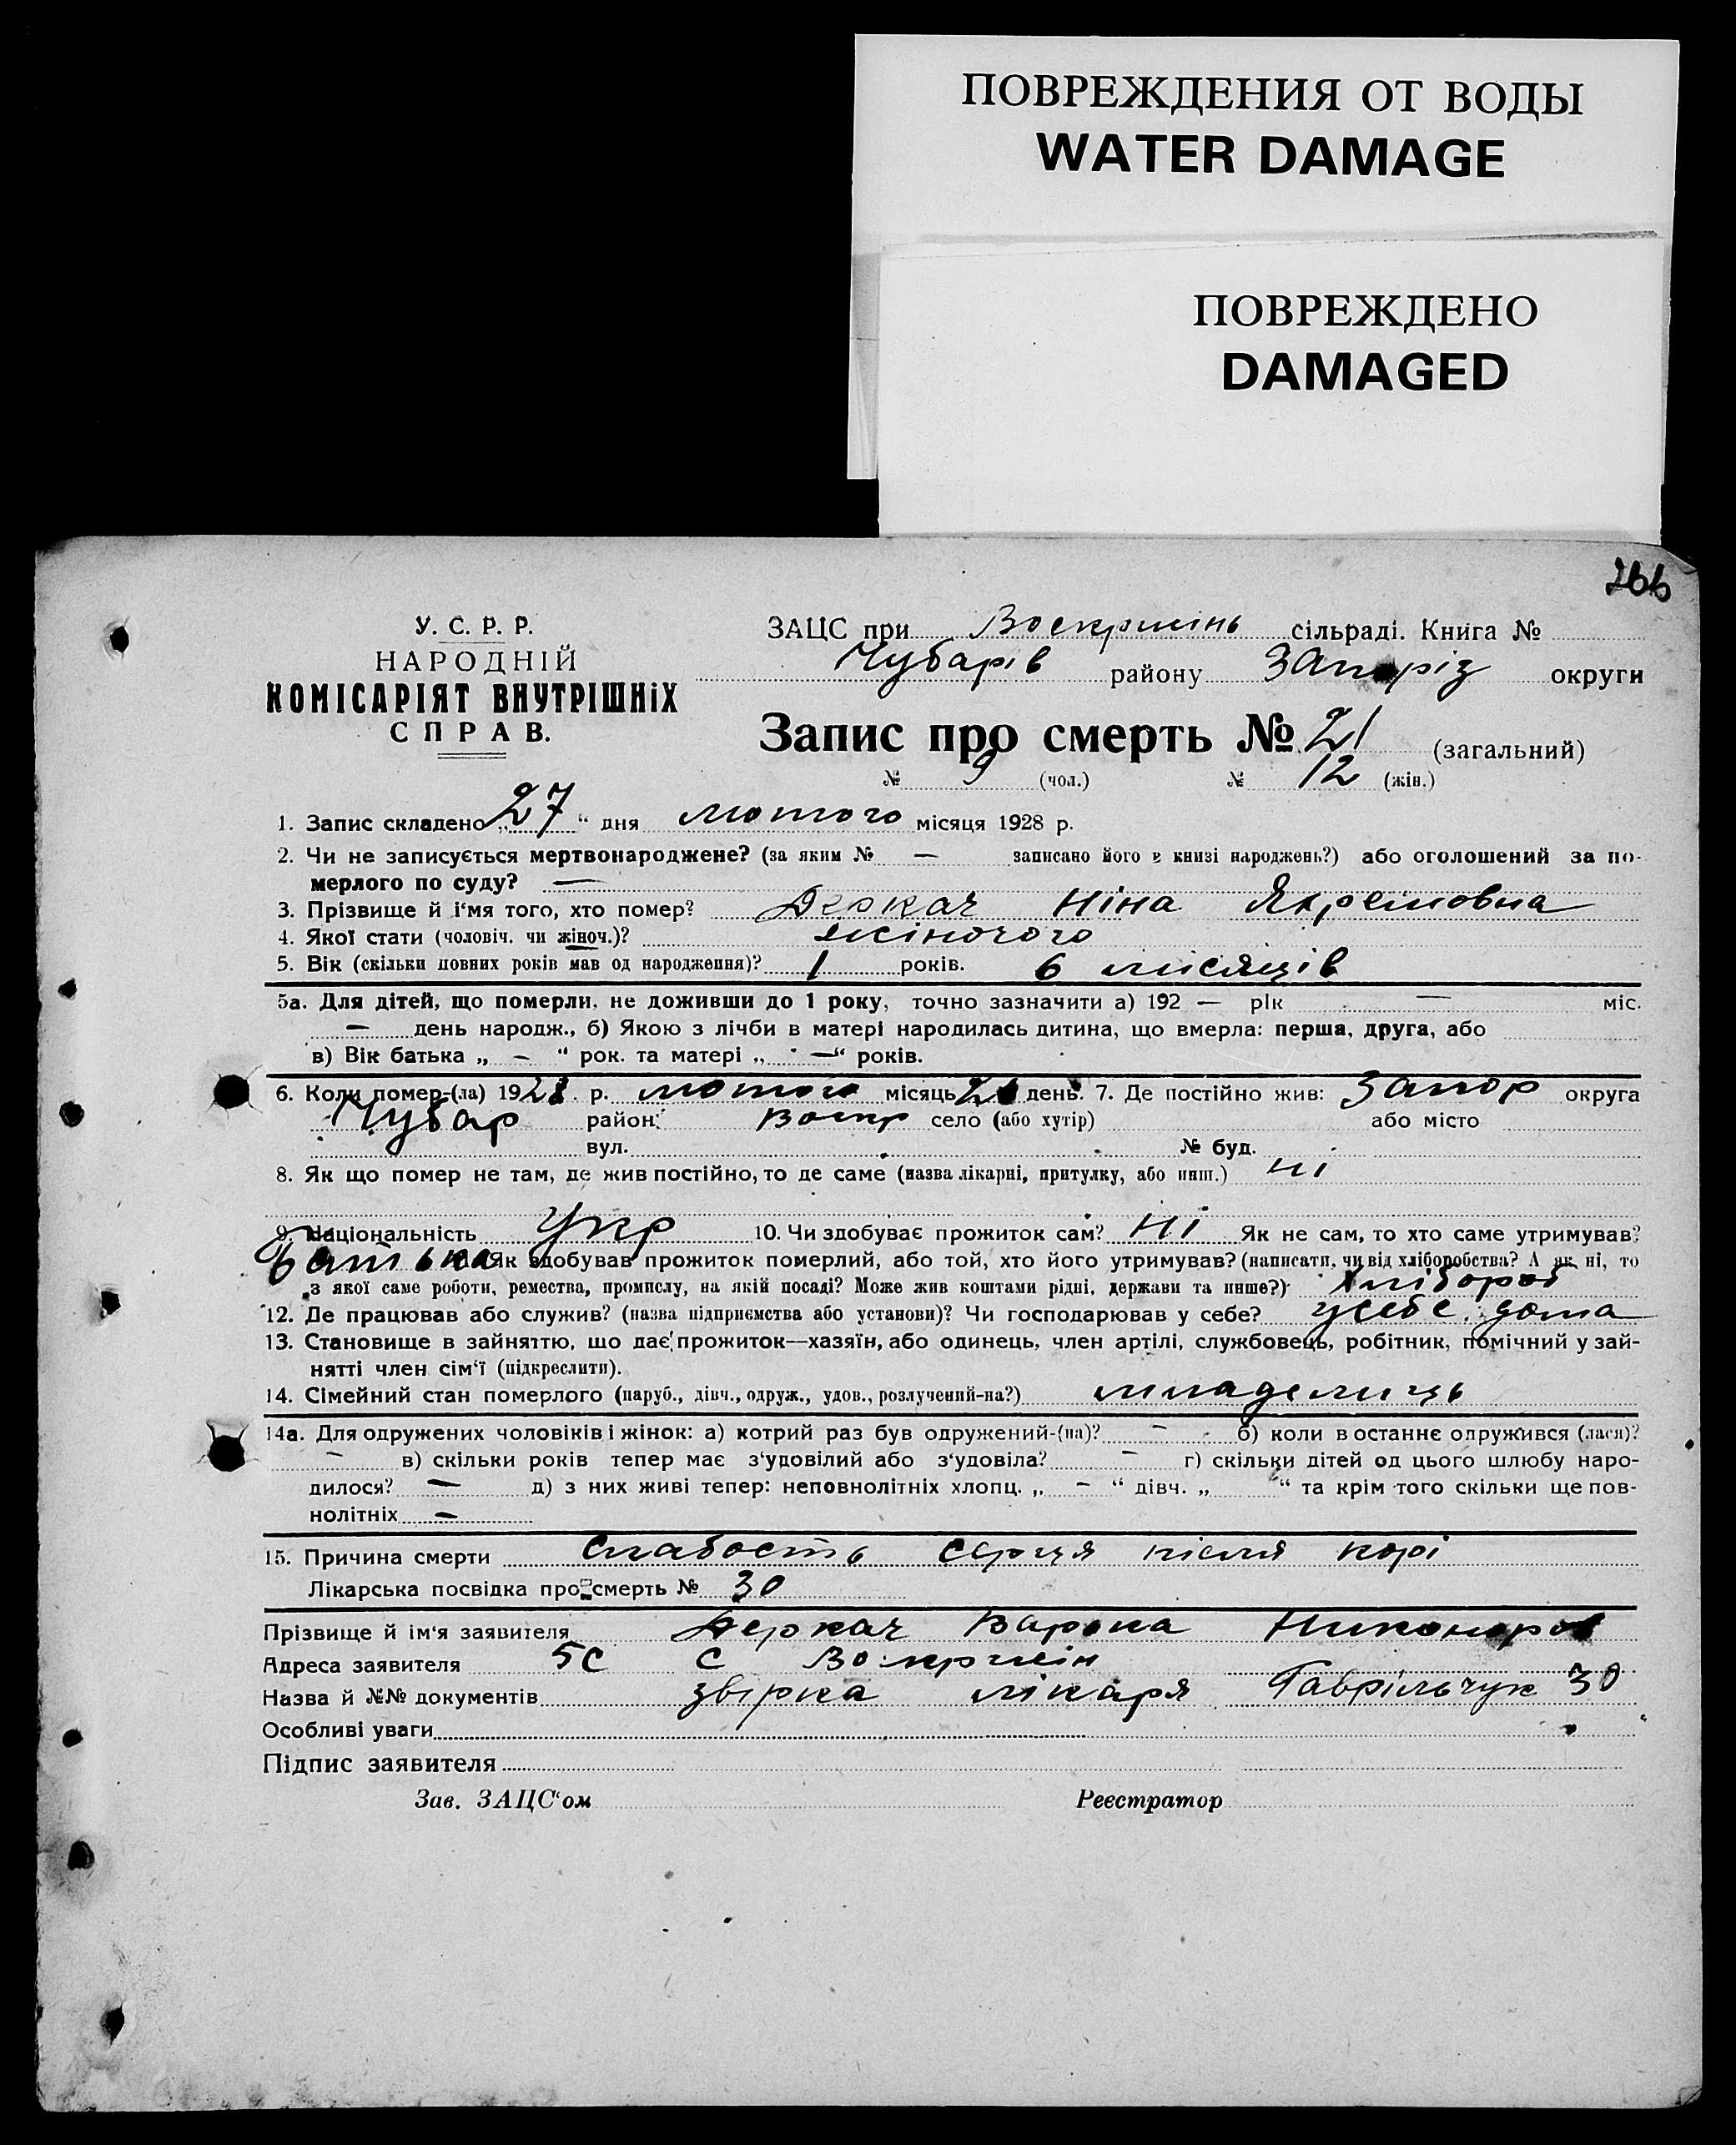 ПОВРЕЖДЕНИЯ ОТ ВОДЫ
WATER DAMAGE
ПОВРЕЖДЕНО
DAMAGED
266
У. С. Р. Р.
НАРОДНІЙ
КОМІСАРІЯТ ВНУТРІШНіХ
СПРАВ.
ЗАЦС при Воскрисінь сільраді. Книга №
Чубарів району Запоріз округи
Запис про смерть № 21 (загальний)
№ 9 (чол.) № 12 (жін.)
1. Запис складено „27“ дня лютого місяця 1928 р.
2. Чи не записується мертвонароджене? (за яким № — записано його в книзі народжень?) або оголошений за по-
мерлого по суду? —
3. Прізвище й і'мя того, хто помер? Деркач Ніна Яхремовна
4. Якої стати (чоловіч. чи жіноч.)? жіночого
5. Вік (скільки повних років мав од народження)? 1 років. 6 місяців
5а. Для дітей, що померли, не доживши до 1 року, точно зазначити а) 192 — рік — міс.
— день народж., б) Якою з лічби в матері народилась дитина, що вмерла: перша, друга, або
в) Вік батька „ — “ рок. та матері „ — “ років.
6. Коли помер-(ла) 1928 р. лютого місяць 26 день. 7. Де постійно жив: Запор округа
Чубар район Воскр село (або хутір) або місто
вул. № буд.
8. Як що помер не там, де жив постійно, то де саме (назва лікарні, притулку, або инш.) ні
9. Національність Укр 10. Чи здобуває прожиток сам? ні Як не сам, то хто саме утримував?
батько Як здобував прожиток померлий, або той, хто його утримував? (написати, чи від хліборобства? А як ні, то
з якої саме роботи, ремества, промислу, на якій посаді? Може жив коштами рідні, держави та инше?) хлібороб
12. Де працював або служив? (назва підприємства або установи)? Чи господарював у себе? усебе дома
13. Становище в зайняттю, що дає прожиток—хазяїн, або одинець, член артілі, службовець, робітник, помічний у зай-
нятті член сім'ї (підкреслити).
14. Сімейний стан померлого (паруб., дівч., одруж., удов., розлучений-на?) младенець
14а. Для одружених чоловіків і жінок: а) котрий раз був одружений-(на)? — б) коли в останнє одружився (лася)?
— в) скільки років тепер має з'удовілий або з'удовіла? — г) скільки дітей од цього шлюбу наро-
дилося? — д) з них живі тепер: неповнолітніх хлопц. „ — “ дівч. „ “ та крім того скільки ще пов-
нолітніх —
15. Причина смерти слабость серця після корі
Лікарська посвідка про смерть № 30
Прізвище й ім'я заявителя Деркач Варока
Адреса заявителя с Воскрисін
Назва й №№ документів лікаря Гаврільчук 30
Особливі уваги
Підпис заявителя
Зав. ЗАЦС'ом Реєстратор